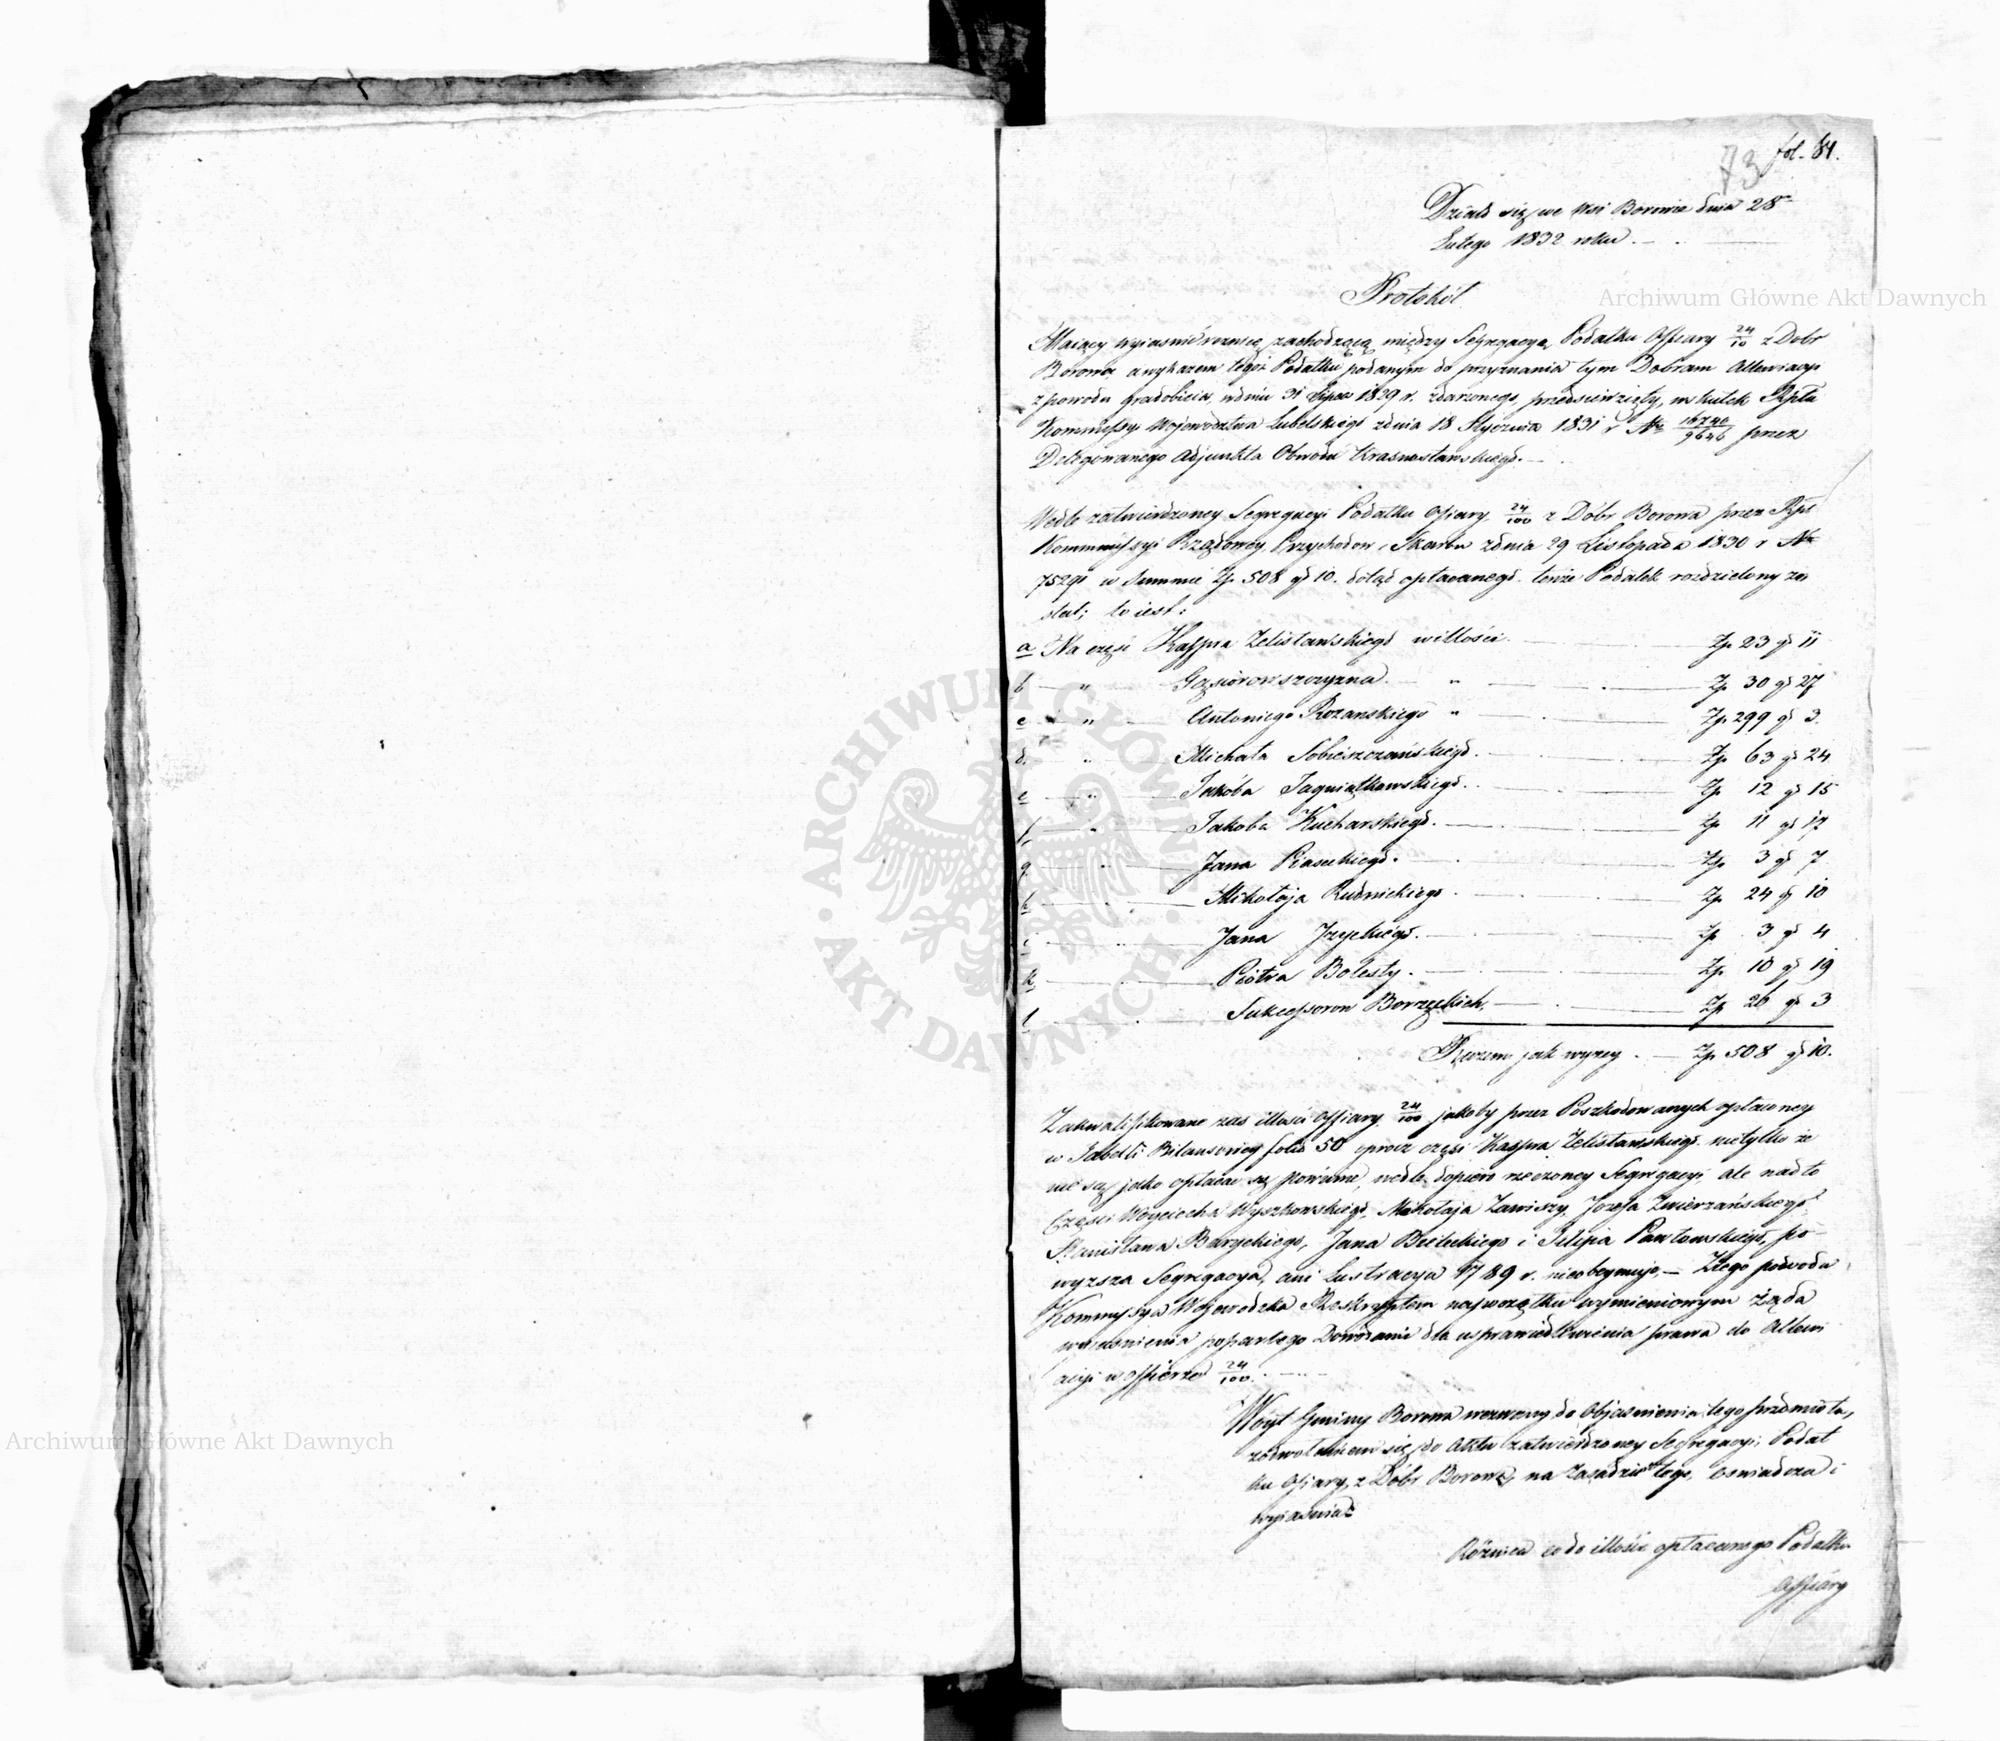 73 fol. 81.
Działo się we Wsi Borowie dnia 28º
Lutego 1832 roku.
Protokół
Archiwum Główne Akt Dawnych
Maiący wyiasnić roznicę zachodzącą między Segregacyą Podatku Offiary 24/10 z Dobr
Borowa, a wykazem tegoż Podatku podanym do przyznania tym Dobram Allewiacyi
z powodu gradobicia, w dniu 31 Lipca 1829 r. zdarzonego, przedsięwzięty, w skutek Rptu
Kommissyi Województwa Lubelskiego z dnia 18 Stycznia 1831 r Nr 16746/9646 przez
Delegowanego Adjunkta Obwodu Krasnostawskiego.
Wedle zatwierdzoney Segregacyi Podatku Ofiary 24/100 z Dóbr Borowa przez Rpt
Kommissyi Rządowey Przychodow i Skarbu z dnia 29 Listopada 1830 r Nr
75291 w Summie Zp. 508 gr 10. dotąd opłacanego. tenże Podatek rozdzielony zo
stał; to iest:
a Na częsć Kaspra Zelisławskiego w illości Zp. 23 gr 11
b " Gąsiorowszczyzna " Zp. 30 gr 27
c " Antoniego Rozanskiego " Zp. 299 gr 3.
d. " Michała Sobieszczańskiego. Zp. 63 gr 24
e " Jakóba Jagniątkowskiego. Zp 12 gr 15
f " Jakoba Kucharskiego. Zp. 11 gr 17
g " Jana Piaseckiego. Zp. 3 gr 7
h Mikołaja Rudnickiego Zp. 24 gr 10
i " Jana Jzyckiego. Zp. 3 gr 4
k Piotra Bolesty. Zp. 10 gr 19
l Sukcessorow Borzęckich, Zp 26 gr 3
Razem jak wyzey Zp. 508 gr 10.
Zakwalifikowane zas illości Offiary 24/100 jakoby przez Poszkodowanych opłaconey
w Tabelli Bilansowey folio 50 oprócz częsci Kaspra Zelisławskiego. nietylko że
nie są jako opłacać są powinne, wedle dopiero rzeczoney Segregacyi, ale nadto
Częsci Woyciecha Wyszkowskiego, Mikołaja Zawiszy, Jozefa Zwierzańskiego
Stanisława Baryckiego, Jana Bieleckiego i Filipa Pawłowskiego, po-
wyzsza Segregacya, ani Lustracya 1789 r. nieobeymuje. — Z tego powodu
Kommyssya Wojewodzka Reskryptem na początku wymienionym żąda
wyiasnienia popartego Dowodami dla usprawiedliwienia prawa do Allewi
acyi w offierze 24/100.
Archiwum Główne Akt Dawnych
Wóyt Gminy Borowa wezwany do Objasnienia tego przedmiotu,
z odwołaniem się do Aktu zatwierdzoney Segregacyi Podat
ku Ofiary, z Dóbr Borowa, na Zasadzie tego, oswiadcza i
wyiasnia:
Róznica co do illości opłacanego Podatku
Offiary
ARCHIWUM GŁÓWNE · AKT DAWNYCH ·